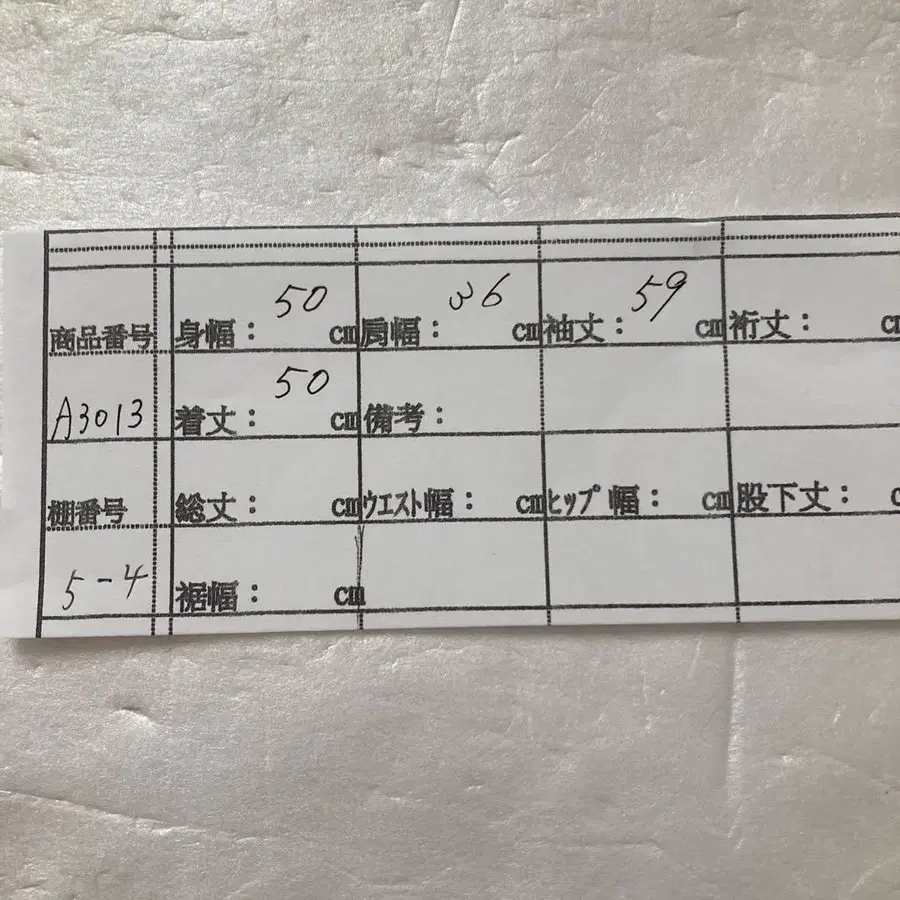 商品番号 身幅：50cm 肩幅：36cm 袖丈：59cm 裄丈：c
A3013 着丈：50cm 備考：
棚番号 総丈：cm ｳｴｽﾄ幅：cm ﾋｯﾌﾟ幅：cm 股下丈：c
5-4 裾幅：cm